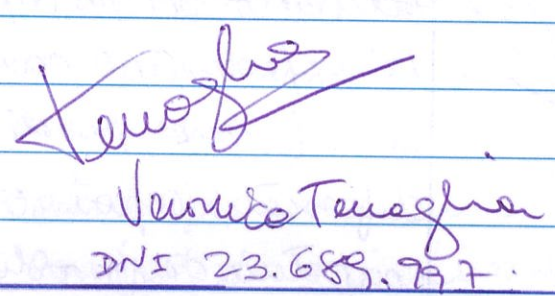 Tenaglia
Veronica Tenaglia
DNI 23.689.997.